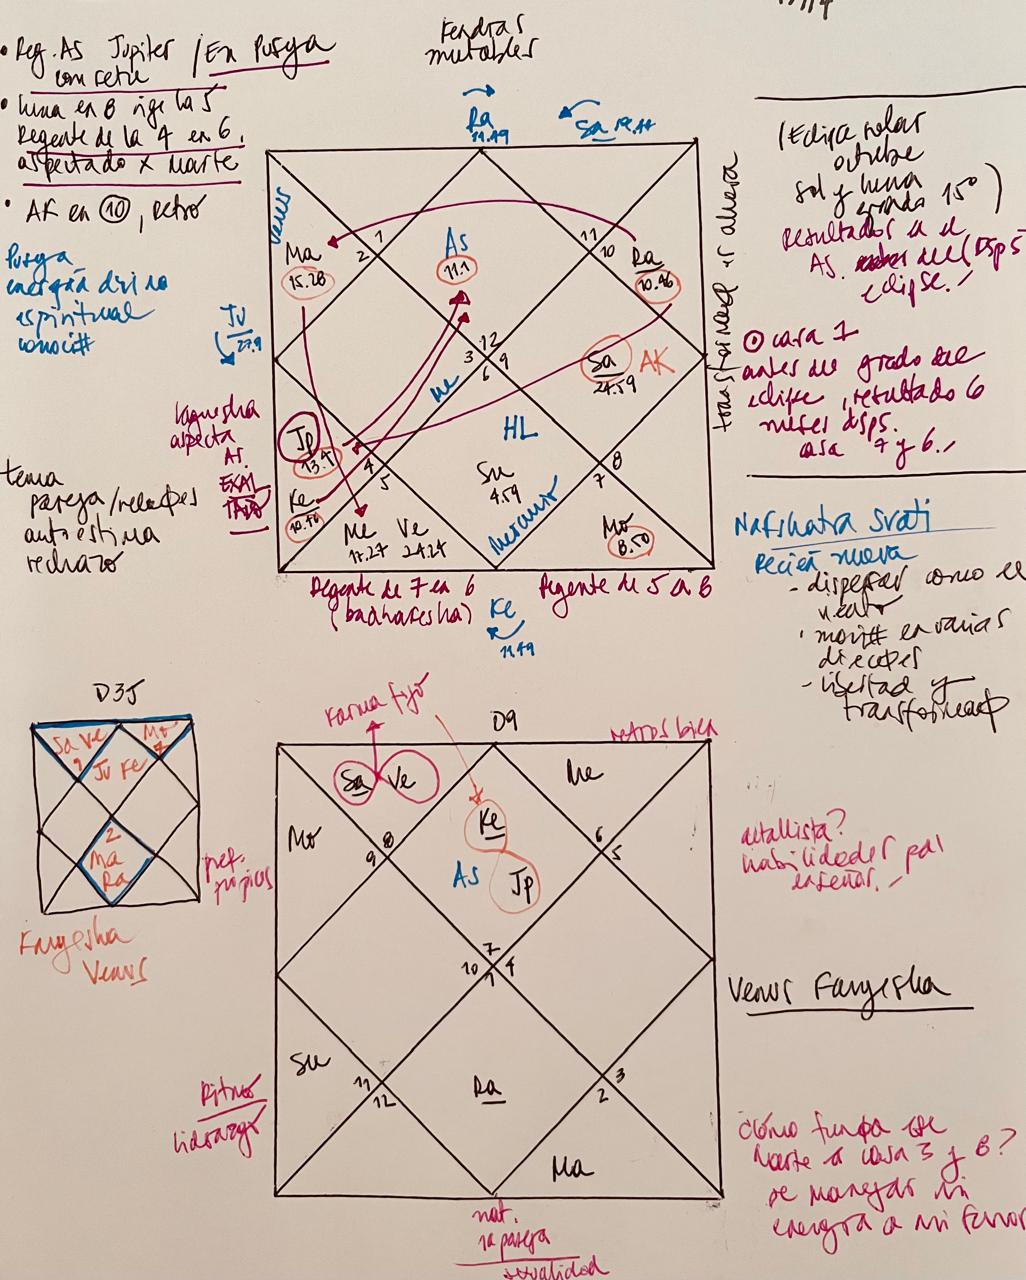 Kendras
mutables
• Reg. As Jupiter / En Pusya
con retu
• Luna en 8 rige la 5
Regente de la 4 en 6.
aspectado x Marte
• AK en 10, retro
Pusya
energía divina
espiritual
Ra
11.49
Sa 19.44
Venus
Ma
15.28
1
2
As
11.1
11
10
Ra
10.46
Ju
27.9
12
3
9
6
Me
Sa
24.59
AK
HL
Lagnesha
aspecta
As.
EXAL
TADO
Jp
13.4
4
5
Ke
Me
17.27
Ve
24.24
Su
4.59
Mercurio
8
7
Mo
8.50
tema
pareja/
autoestima
rechazo
Regente de 7 en 6
(badhakesha)
Regente de 5 en 8
Ke
11.49
(Eclipse solar
octubre
Sol y luna
grado 15°)
Resultados en el
As. del
eclipse.
casa 7
antes del grado del
eclipse, resultado 6
meses dsps.
casa 7 y 6.
Nakshatra Svati
Recién nueva
- dispersar como el
viento
en varias
- libertad y
D9
Karma fijo
Sa Ve
Me
Ke
As
Jp
Mo
8
9
6
5
7
10
4
1
Su
11
12
Ra
3
2
Ma
Sa Ve
9
Ju Ke
Mo
7
2
Ma
Ra
Venus
Ritmo
Liderazgo
nat.
la pareja
sexualidad
detallista?
habilidades pa
enseñar.
Cómo
Marte a casa 3 y 8?
se manejar mi
energía a mi favor